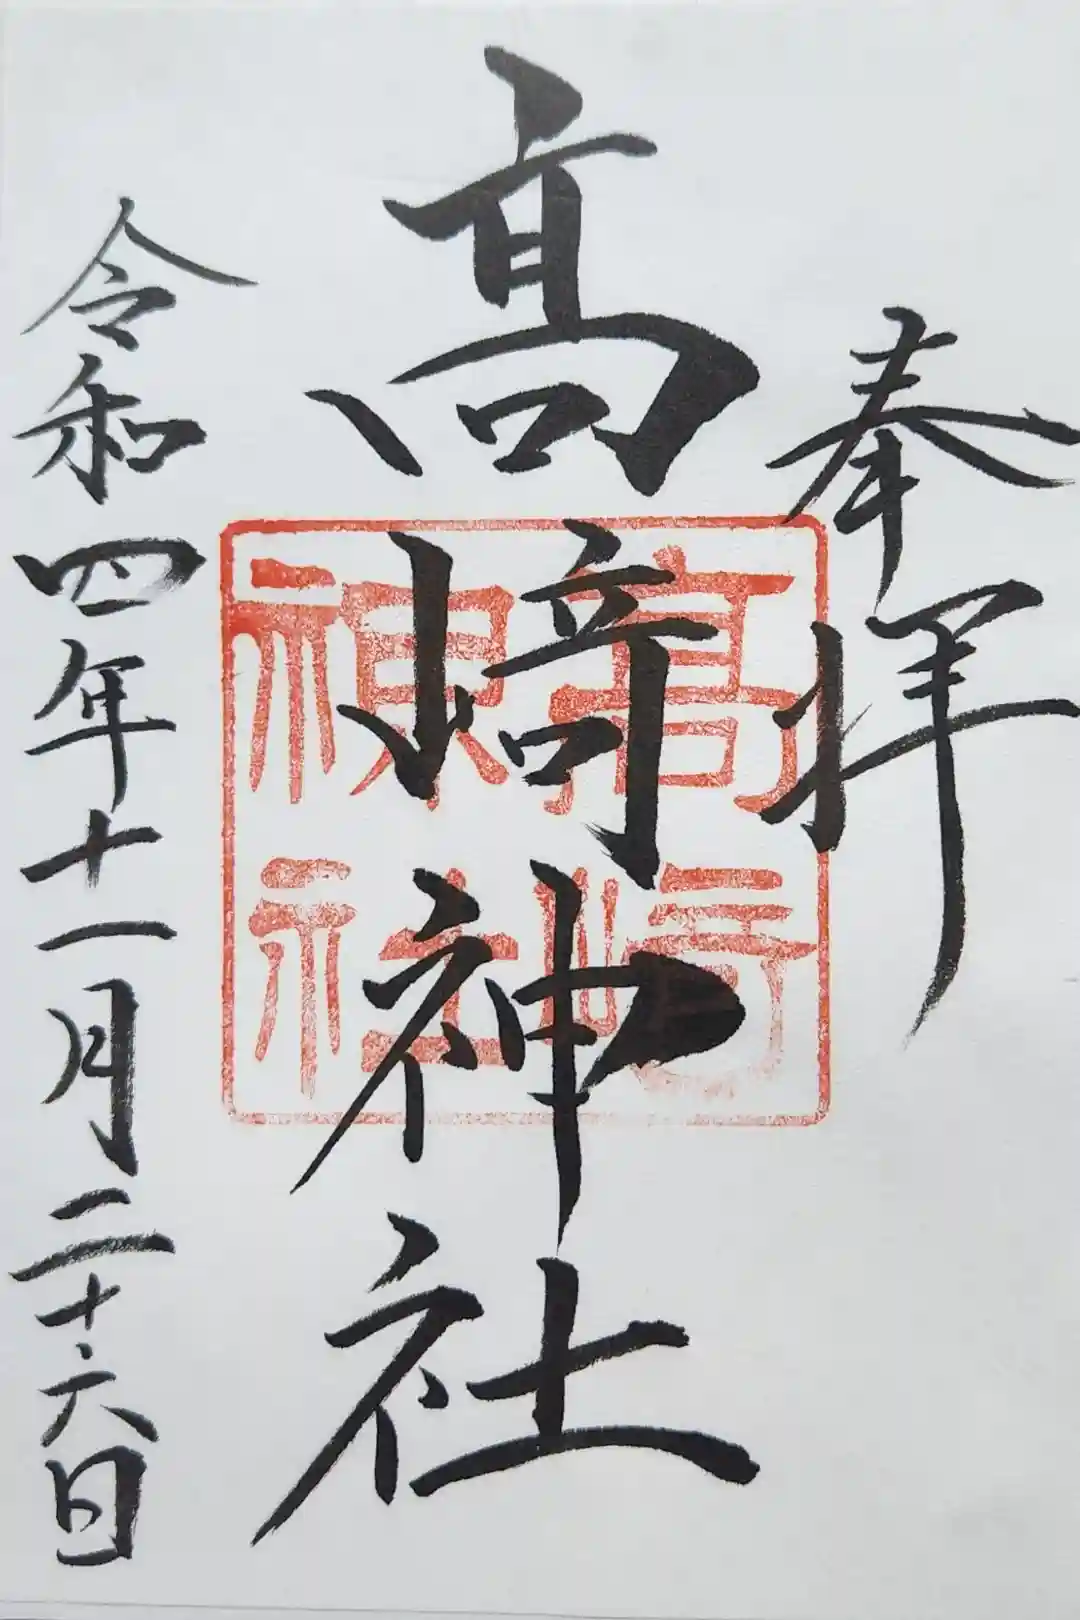 奉拝
高﨑神社
高﨑
神社
令和四年十一月二十六日